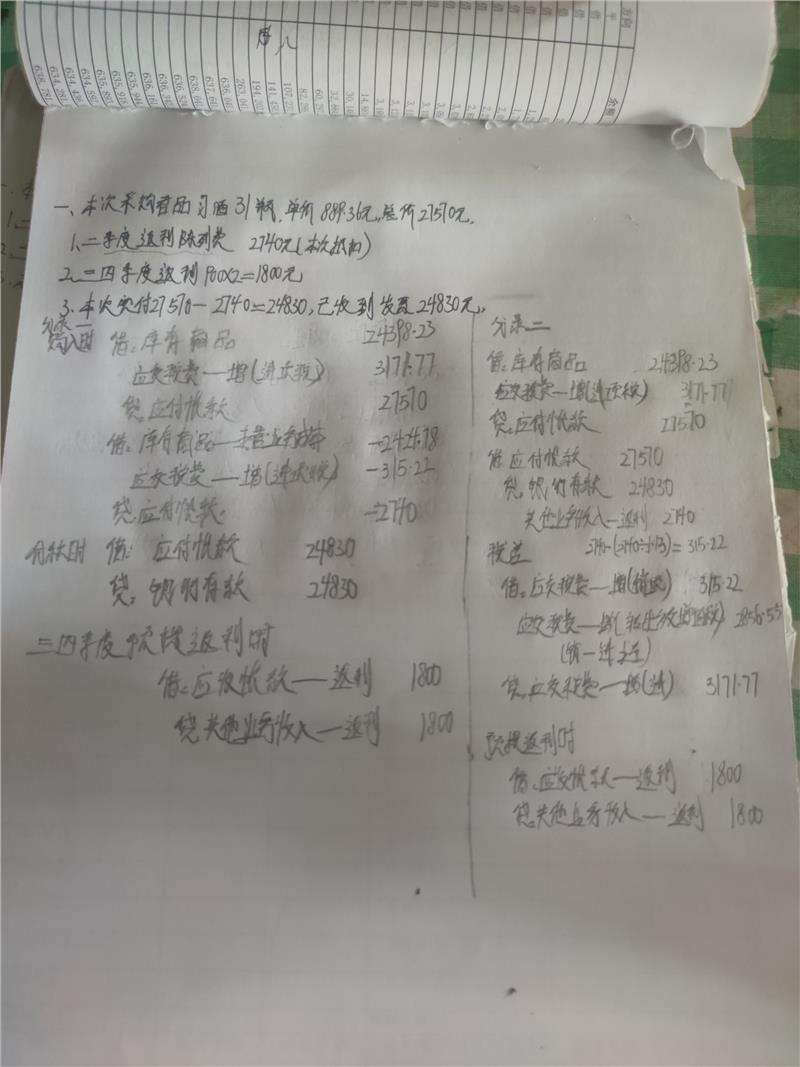 方向
平
借
余额
638,281
634,281
634,43
634,59
635,89
635,918
635,94
636,18
636,24
636,32
638,06
637,64
636,06
263,04
194,20
141,43
107,22
82,29
一、本次采购君品习酒31瓶,单价889.36元,总价27570元,
1、二季度返利陈列费 2740元(本次抵扣)
2、三四季度返利900×2=1800元
3、本次实付27570-2740=24830,已收到发票24830元。
分录一
购入时 借:库存商品 24398.23
应交税费—增(进项税) 3171.77
贷:应付账款 27570
借:库存商品— -2424.78
应交税费—增(进项税) -315.22
贷:应付账款: -2740
付款时 借:应付账款 24830
贷:银行存款 24830
三四季度预提返利时
借:应收账款—返利 1800
贷:其他业务收入—返利 1800
分录二
借:库存商品 24398.23
应交税费—增(进项税) 3171.77
贷:应付账款 27570
借:应付账款 27570
贷:银行存款 24830
其他业务收入—返利 2740
税差 2740-(2740÷1.13)=315.22
借:应交税费—增(销项) 315.22
应交税费—增(转出未交增值税) 2856.55
(销-进之差)
贷:应交税费—增(进) 3171.77
预提返利时
借:应收账款—返利 1800
贷:其他业务收入—返利 1800